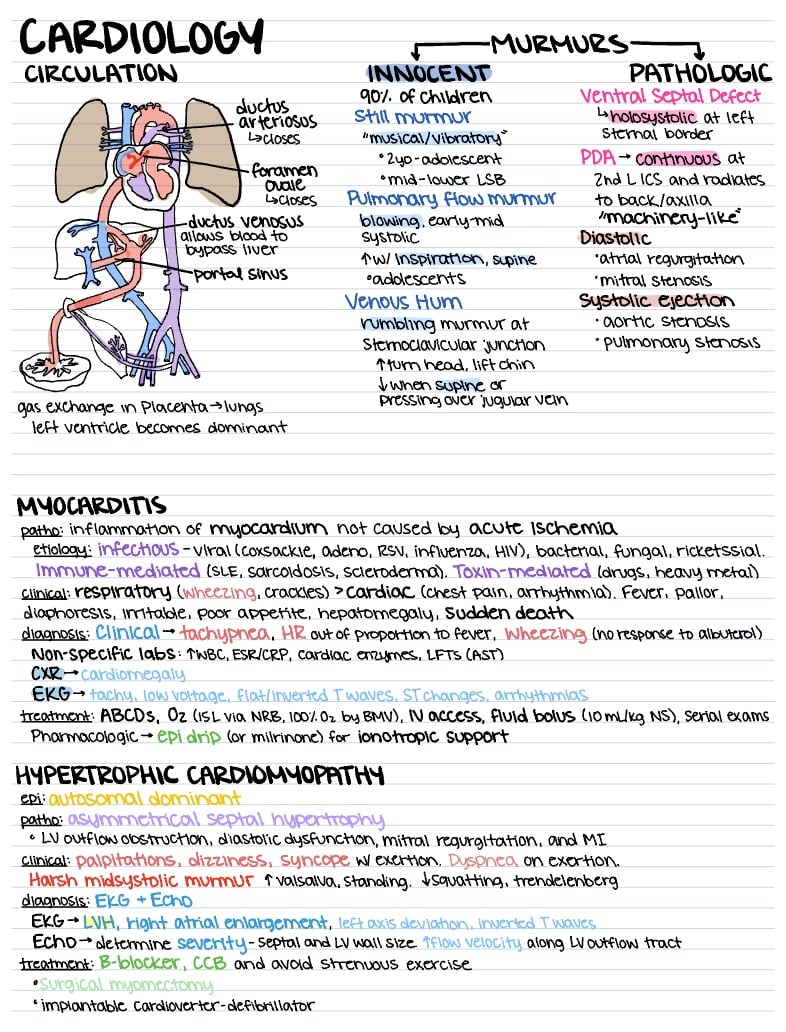 CARDIOLOGY
CIRCULATION
ductus
arteriosus
↳closes
foramen
ovale
↳closes
ductus venosus
allows blood to
bypass liver
portal sinus
gas exchange in Placenta→lungs
left ventricle becomes dominant
MURMURS
INNOCENT
90% of children
Still murmur
"musical/vibratory"
•2yo-adolescent
•mid-lower LSB
Pulmonary flow murmur
blowing, early-mid
systolic
↑w/ inspiration, supine
•adolescents
Venous Hum
rumbling murmur at
Sternoclavicular junction
↑turn head, lift chin
↓when supine or
pressing over jugular vein
PATHOLOGIC
Ventral Septal Defect
↳holosystolic at left
sternal border
PDA→ continuous at
2nd L ICS and radiates
to back/axilla
"machinery-like"
Diastolic
•atrial regurgitation
•mitral stenosis
Systolic ejection
•aortic stenosis
•pulmonary stenosis
MYOCARDITIS
patho: inflammation of myocardium not caused by acute Ischemia
etiology: infectious - viral (coxsackie, adeno, RSV, influenza, HIV), bacterial, fungal, ricketssial.
Immune-mediated (SLE, sarcoidosis, scleroderma). Toxin-mediated (drugs, heavy metal)
clinical: respiratory (wheezing, crackles) > cardiac (chest pain, arrhythmia). Fever, pallor,
diaphoresis, irritable, poor appetite, hepatomegaly, sudden death
diagnosis: Clinical → tachypnea, HR out of proportion to fever, wheezing (no response to albuterol)
Non-specific labs: ↑WBC, ESR/CRP, cardiac enzymes, LFTs (AST)
CXR→cardiomegaly
EKG→tachy, low voltage, flat/inverted T waves, ST changes, arrhythmias
treatment: ABCDs, O₂ (15L via NRB, 100% O₂ by BMV), IV access, fluid bolus (10 mL/kg NS), serial exams
Pharmacologic→ epi drip (or milrinone) for ionotropic support
HYPERTROPHIC CARDIOMYOPATHY
epi: autosomal dominant
patho: asymmetrical septal hypertrophy
• LV outflow obstruction, diastolic dysfunction, mitral regurgitation, and MI
clinical: palpitations, dizziness, syncope w/ exertion. Dyspnea on exertion.
Harsh midsystolic murmur ↑valsalva, standing. ↓squatting, trendelenberg
diagnosis: EKG + Echo
EKG→ LVH, right atrial enlargement, left axis deviation, inverted T waves
Echo→ determine severity - septal and LV wall size ↑flow velocity along LV outflow tract
treatment: B-blocker, CCB and avoid strenuous exercise
•Surgical myomectomy
•implantable cardioverter-defibrillator